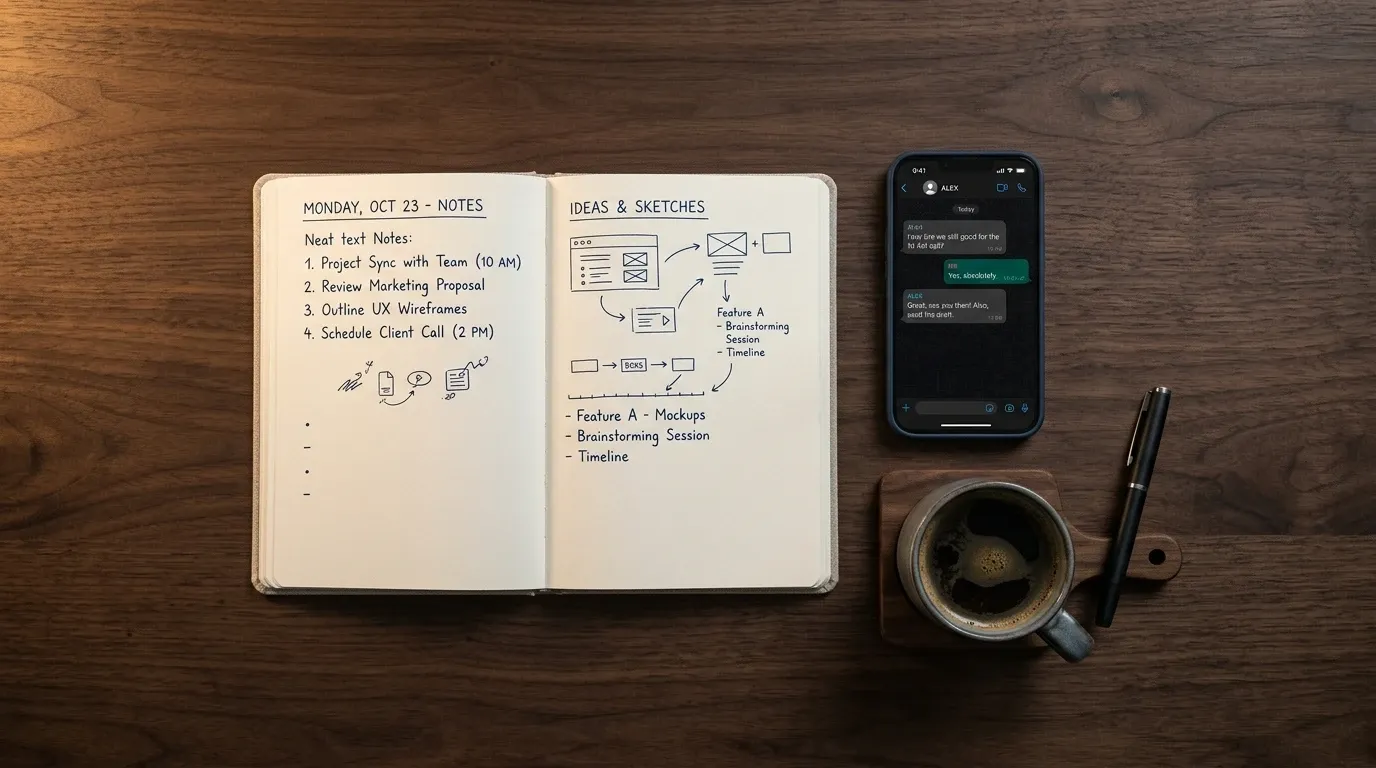 MONDAY, OCT 23 - NOTES
Neat text Notes:
1. Project Sync with Team (10 AM)
2. Review Marketing Proposal
3. Outline UX Wireframes
4. Schedule Client Call (2 PM)
IDEAS & SKETCHES
Feature A
- Brainstorming
Session
- Timeline
- Feature A - Mockups
- Brainstorming Session
- Timeline
ALEX
Today
we still good for the
Yes, absolutely
ALEX
Great, then! Also,
draft.